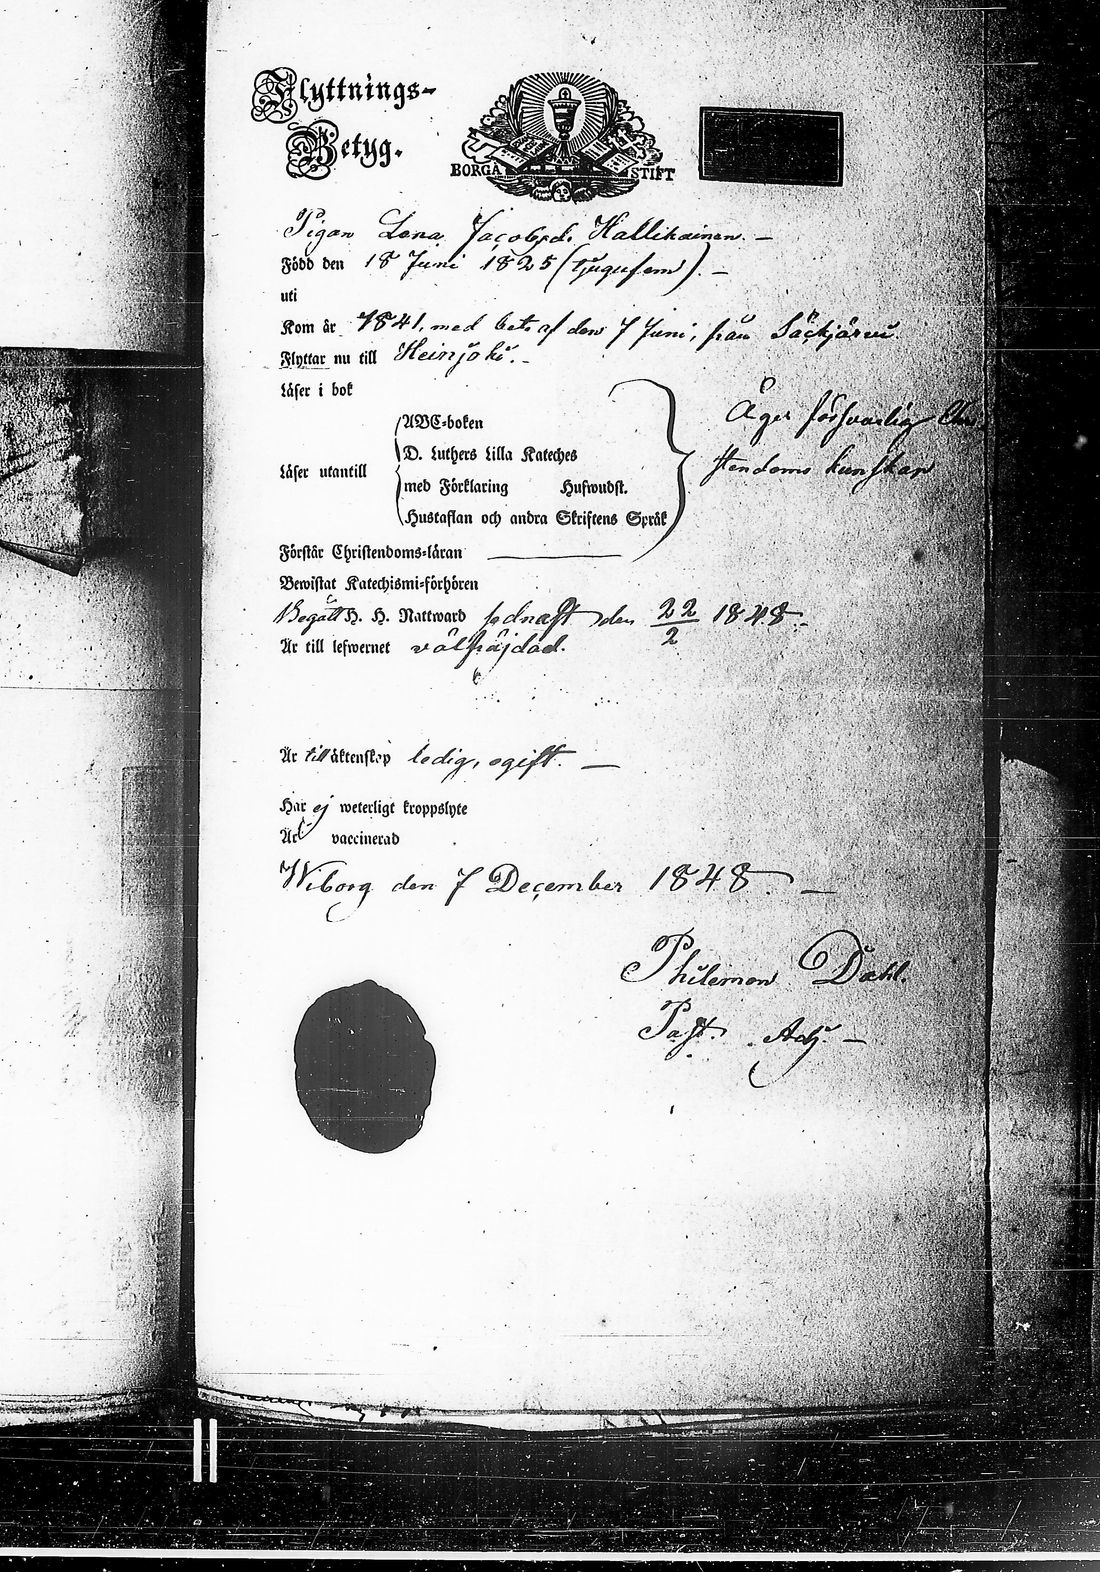 Flyttnings-
Betyg.
BORGÅ STIFT
Pigan Lena Jacobsd. Hallikainen. —
Född den 18 Juni 1825 (tjugufem). —
uti
Kom år 1841, med bet. af den 7 Juni, från Säckjärvi.
Flyttar nu till Heinjoki. -
Läser i bok
ABC-boken
D. Luthers Lilla Kateches
Läser utantill
med Förklaring Hufwudst.
Hustaflan och andra Skriftens Språk
Äger försvarlig Chri-
stendoms kunskap
Förstår Christendoms-läran ———
Bewistat Katechismi-förhören
Begått H. H. Nattward sednast den 22/2 1848.
Är till lefwernet välfräjdad.
Är till äktenskap ledig, ogift. —
Har ej weterligt kroppslyte
Är vaccinerad
Wiborg den 7 December 1848. —
Philemon Dahl.
Past. Adj. —